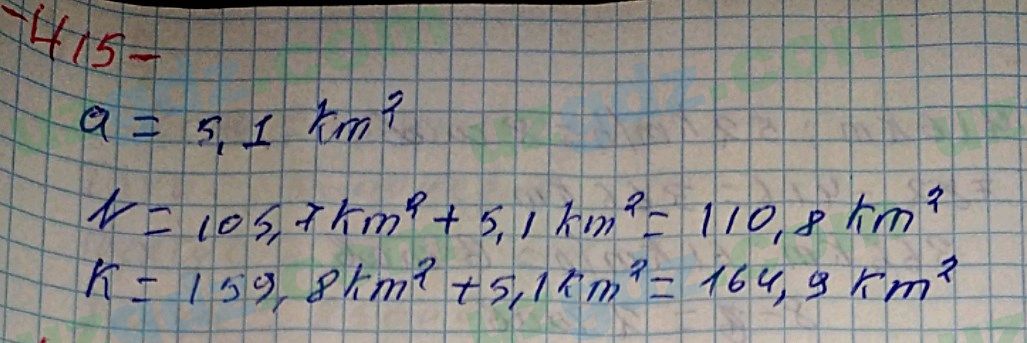 -415-
a = 5,1 km²
V = 105,7 km² + 5,1 km² = 110,8 km²
K = 159,8 km² + 5,1 km² = 164,9 km²